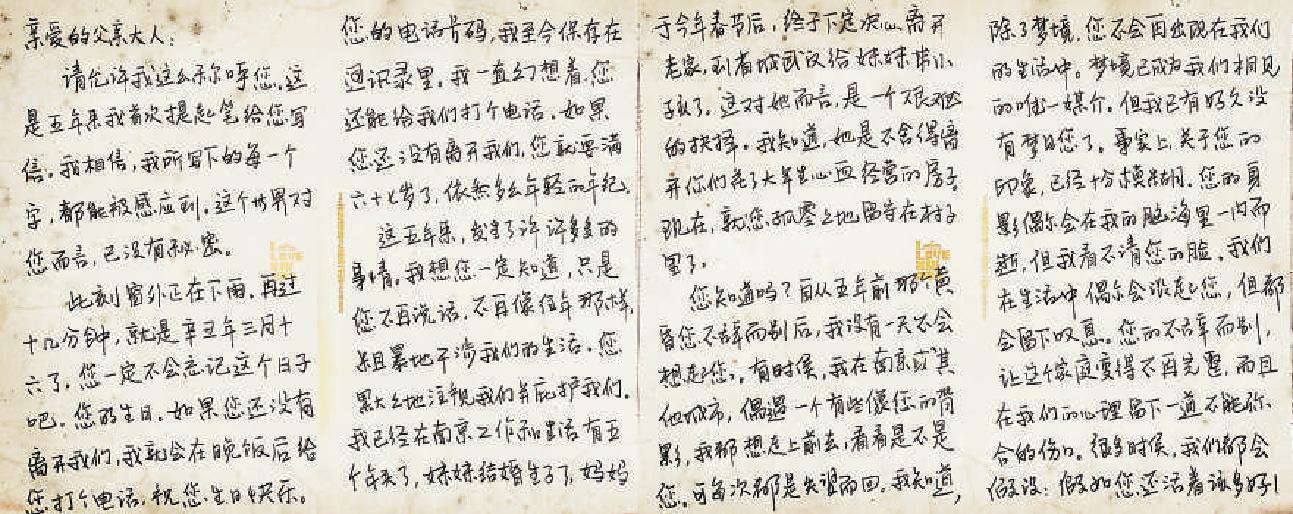 亲爱的父亲大人：
请允许我这么称呼您。这
是五年来我首次提起笔给您写
信。我相信，我所写下的每一个
字，都能被感应到。这个世界对
您而言，已没有秘密。
此刻窗外正在下雨。再过
十几分钟，就是辛丑年三月十
六了。您一定不会忘记这个日子
吧。您的生日。如果您还没有
离开我们，我就会在晚饭后给
您打个电话，祝您生日快乐。
您的电话号码，我至今保存在
通讯录里。我一直幻想着，您
还能给我们打个电话。如果
您还没有离开我们，您就要满
六十七岁了，依然多么年轻的年纪。
这五年来，发生了许许多多的
事情。我想您一定知道，只是
您不再说话，不再像往年那样，
粗暴地干涉我们的生活。您
默默地注视我们并庇护我们。
我已经在南京工作和生活有五
个年头了，妹妹结婚生子了，妈妈
于今年春节后，终于下定决心离开
老家，到省城武汉给妹妹带小
孩了。这对她而言，是一个艰难
的抉择。我知道，她是不舍得离
开你们花了大半生心血经营的房子。
现在，就您孤零零地留守在村子
里了。
您知道吗？自从五年前那个黄
昏您不辞而别后，我没有一天不会
想起您。有时候，我在南京或其
他城市，偶遇一个有些像您的背
影，我都想走上前去，看看是不是
您。可每次都是失望而回。我知道，
除了梦境，您不会再出现在我们
的生活中。梦境已成为我们相见
的唯一媒介。但我已有好久没
有梦见您了。事实上，关于您的
印象，已经十分模糊。您的身
影偶尔会在我的脑海里一闪而
逝，但我看不清您的脸。我们
在生活中偶尔会谈起您，但都
会留下叹息。您的不辞而别，
让这个家庭变得不再完整，而且
在我们的心理留下一道不能弥
合的伤口。很多时候，我们都会
假设：假如您还活着该多好！